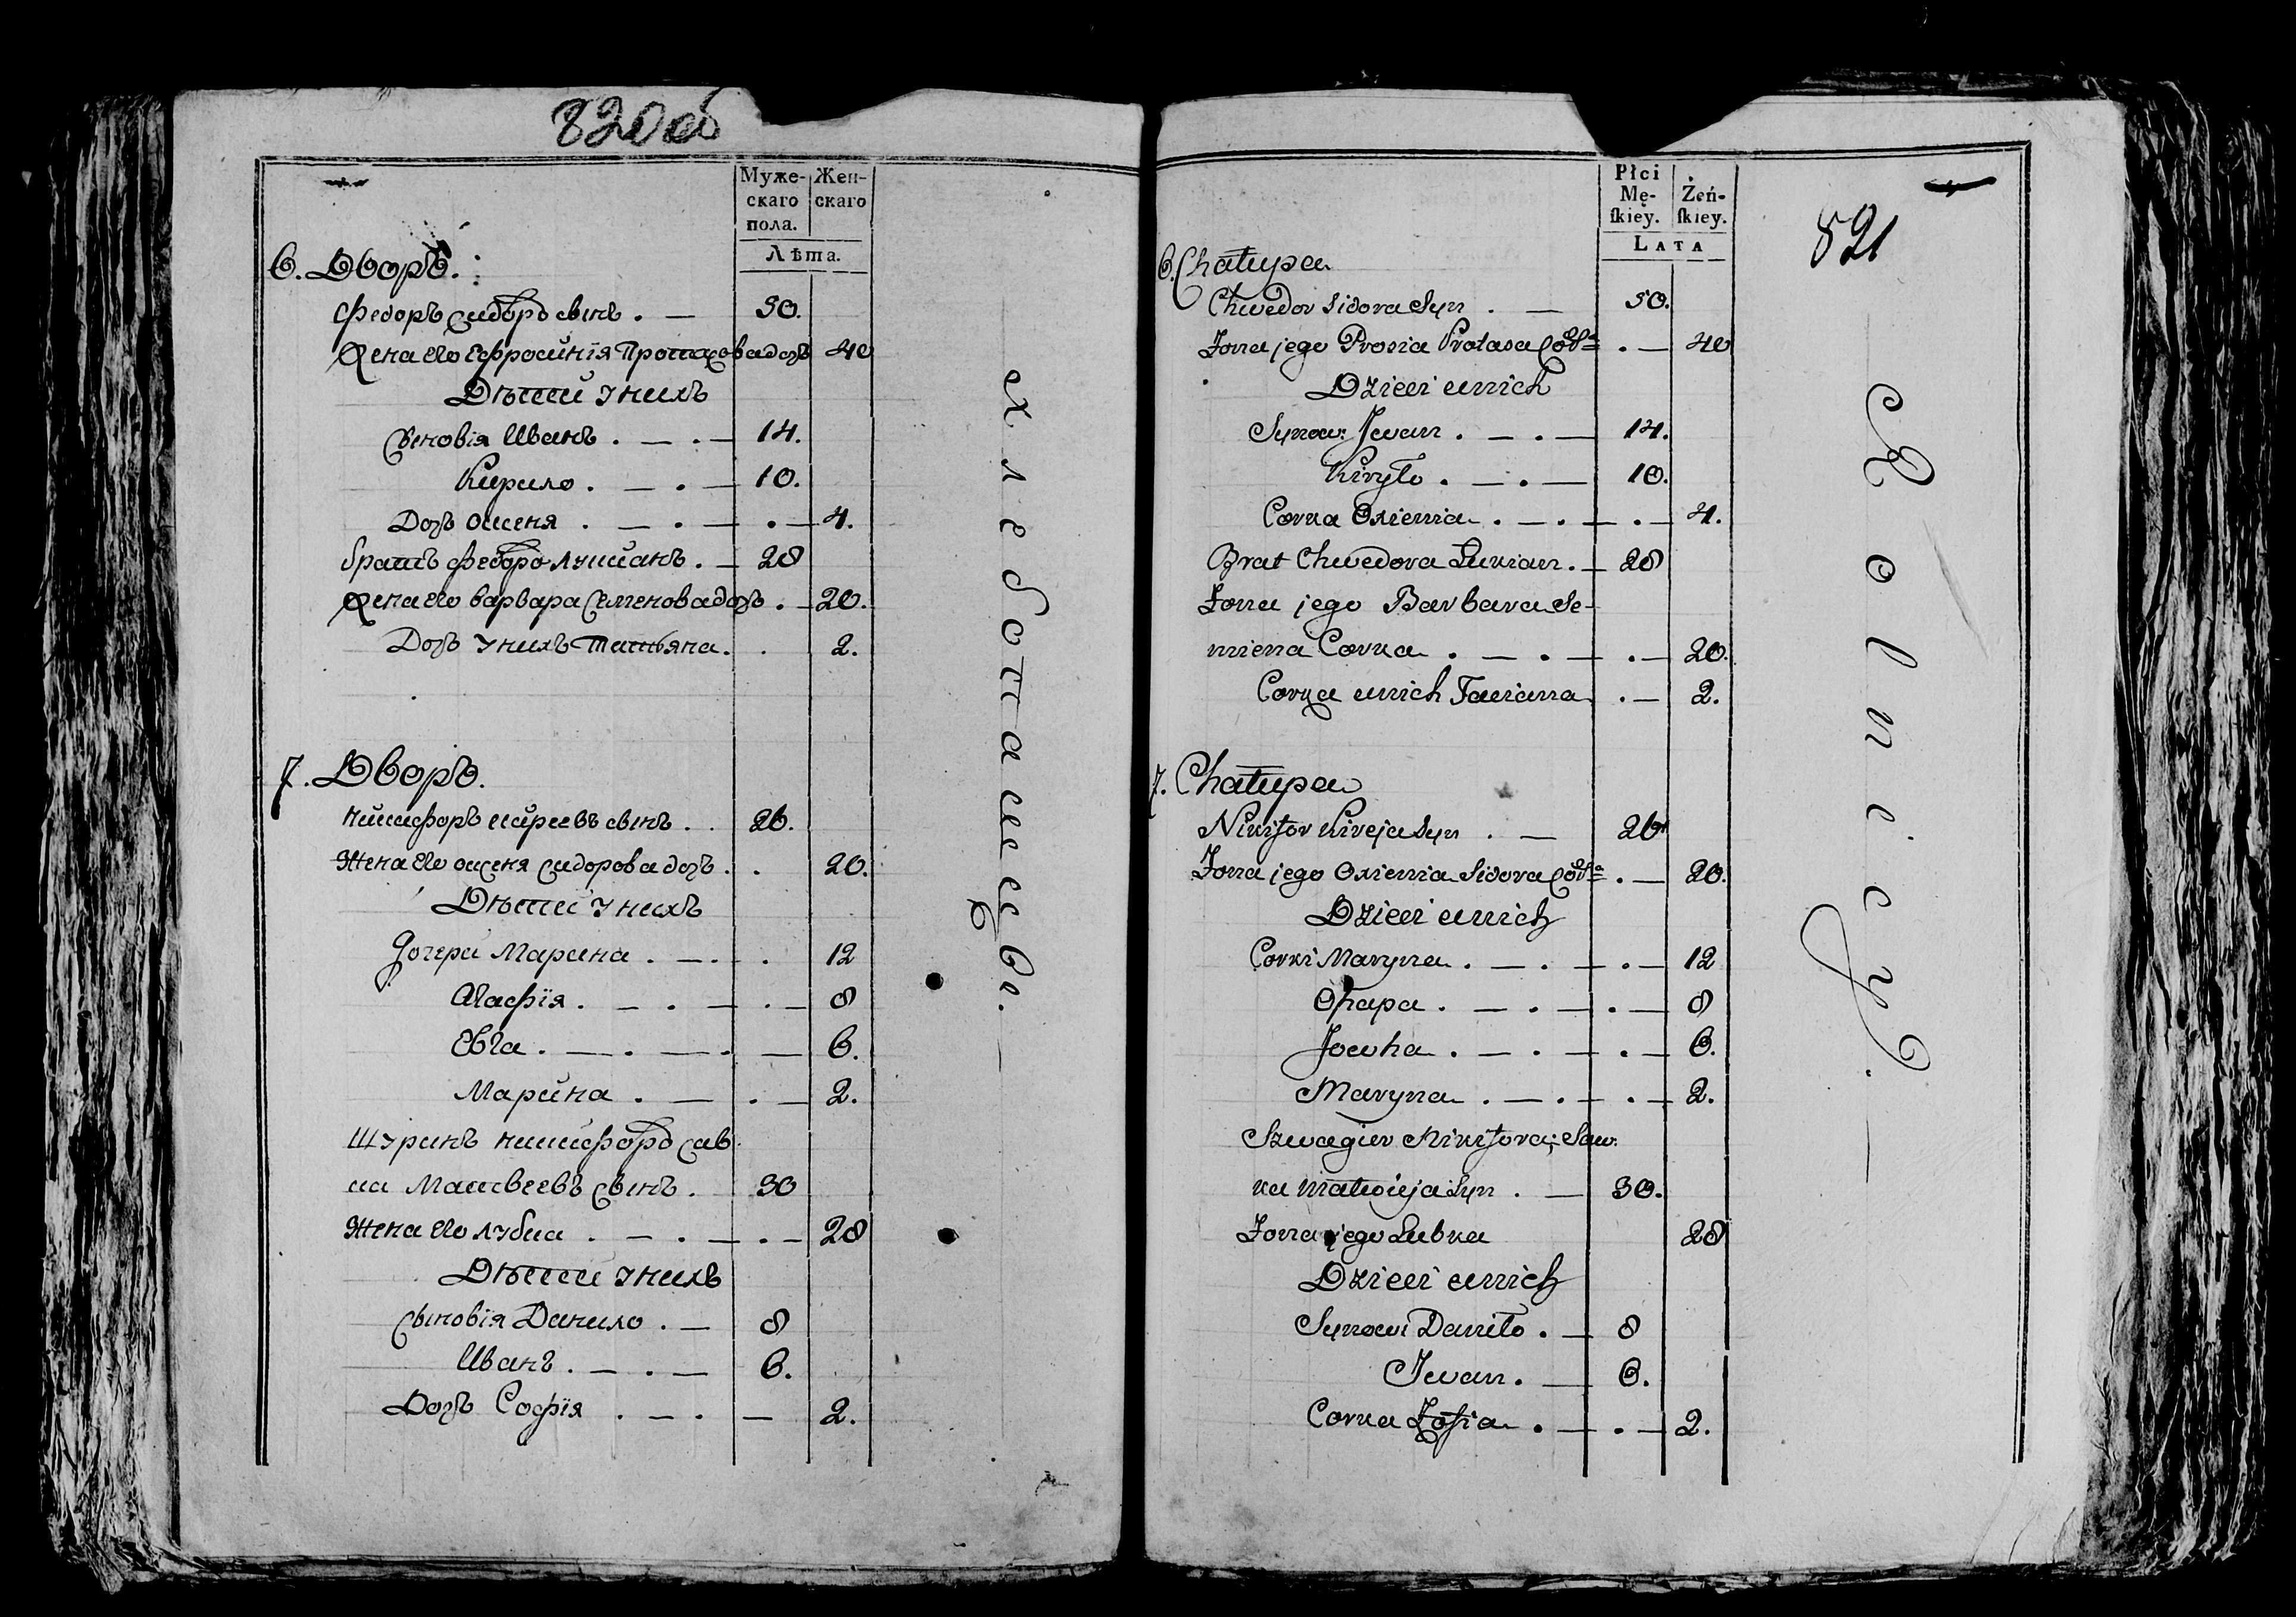 820об
Муже-
скаго
пола.
Жен-
скаго
Лѣта.
6. Дворъ.
Федоръ Сидоръ сынъ . — 50.
Жена его Ефросинія Протасова дочь 40
Дѣтей у нихъ
Сыновія Иванъ . — . — 14.
Кирило . — . — 10.
Дочь Оксеня . — . — . — 4.
братъ Федора Лукианъ . — 28
Жена его Варвара Семенова дочь . — 20.
Дочь у нихъ Татьяна . . 2.
7. Дворъ.
Никифоръ Киреевъ сынъ . . 26.
Жена его Оксеня Сидорова дочь . . 20.
Дѣтей у нихъ
Дочери Марина . — . . 12
Агафія . — . — . — 8
Евга . — . — . — 6.
Марина . — . — 2.
Шуринъ Никифоръ Сав
ка Матвеевъ сынъ . 30
Жена его Лубка . — . — . — 28
Дѣтей у нихъ
Сыновія Данило . — 8
Иванъ . — . — 6.
Дочь Софія . — . — 2.
Płci
Mę-
ſkiey.
Żeń-
ſkiey.
LATA
821
6. Chałupa
Chwedor Sidora Syn . — 50.
Żona jego Prosia Protasa Córka . — 40
Dzieci u nich
Synowi Jwan . — . — 14.
Kiryło . — . — 10.
Corka Oxienia . — . — . — 4.
Brat Chwedora Łukian . — 28
Żona jego Barbara Se-
miena Corka . — . — . — 20.
Corka u nich Taciana . — 2.
7. Chałupa
Nikifor Kireja Syn . — 26
Żona jego Oxienia Sidora Córka . — 20.
Dzieci u nich
Corki Maryna . — . — . — 12
Ohapa . — . — . — 8
Jewha . — . — . — 6.
Maryna . — . — . — 2.
Szwagier Nikifora; Saw.
ka Matwieja Syn . — 30.
Żona jego Lubka 28
Dzieci u nich
Synowi Daniło . — 8
Jwan . — 6.
Corka Zofia . — . — 2.
хлебопашецве. —
Rolnicy. —